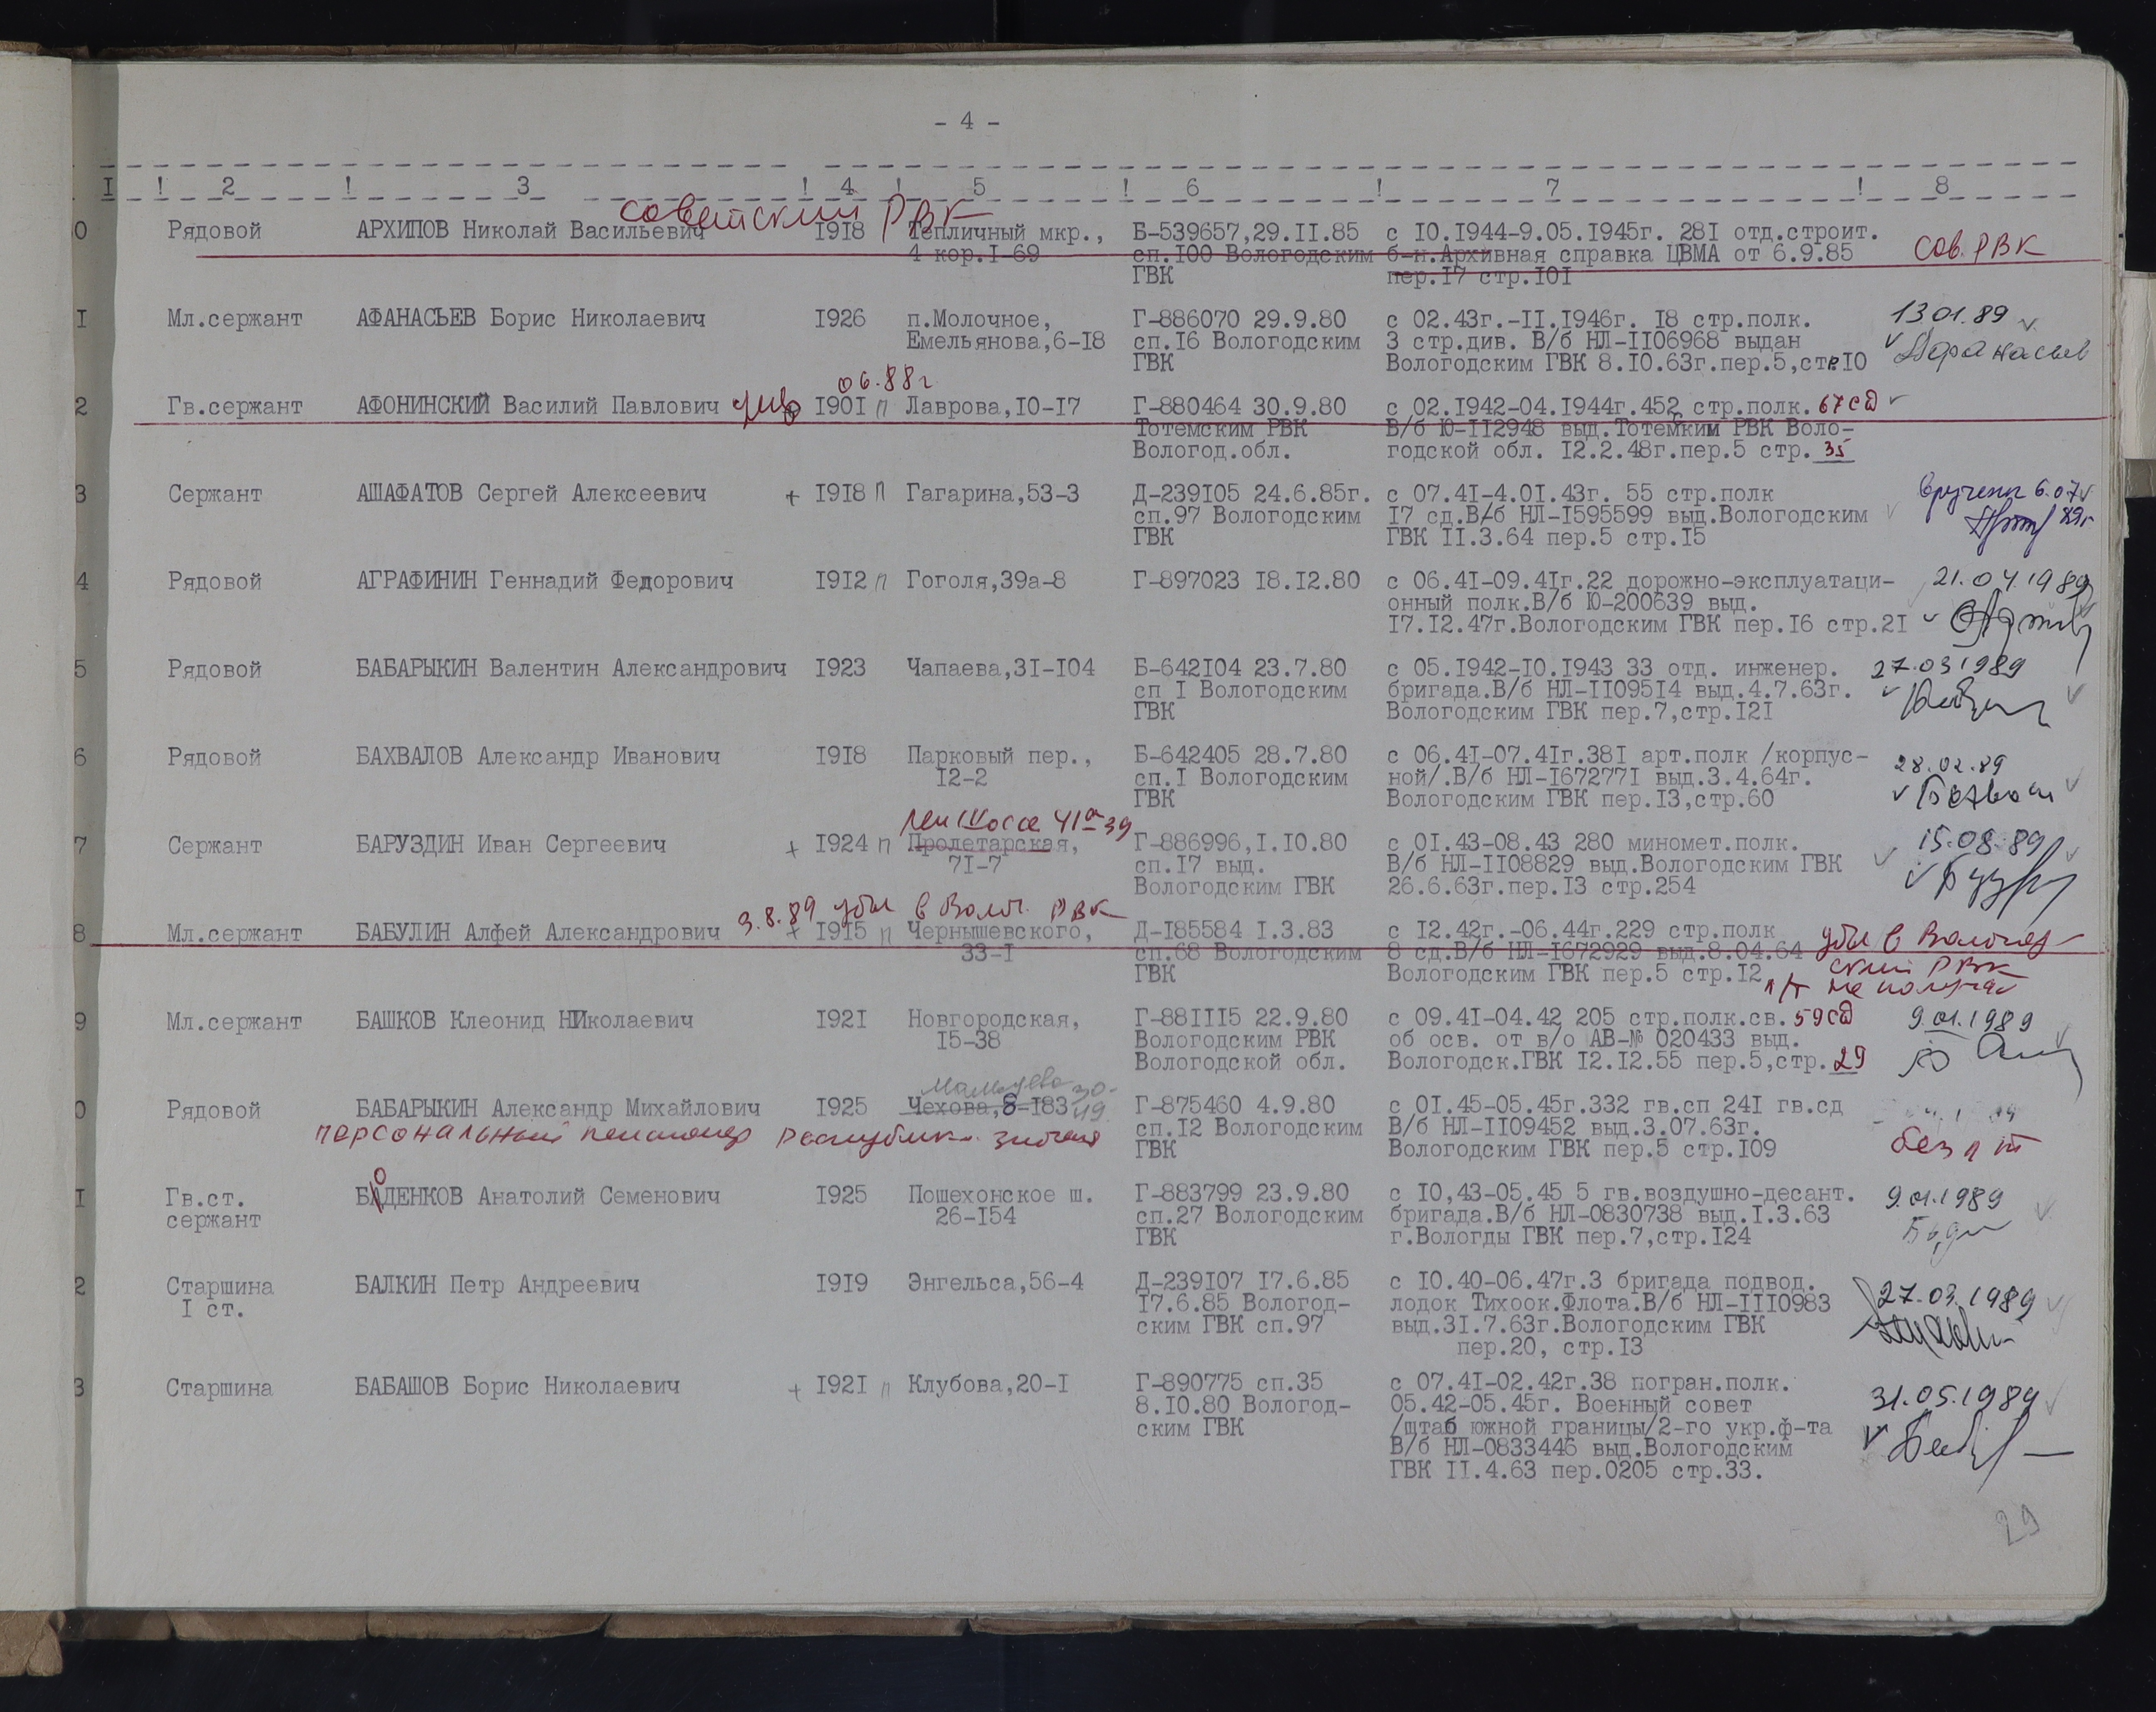 - 4 -
I ! 2 ! 3 ! 4 ! 5 ! 6 ! 7 ! 8
советский РВК
0 Рядовой АРХИПОВ Николай Васильевич 1918 Тепличный мкр., Б-539657,29.II.85 с IO.I944-9.05.I945г. 28I отд.строит.
4 кор.I-69 сп.I00 Вологодским б-н.Архивная справка ЦВМА от 6.9.85 Сов. РВК
ГВК пер.I7 стр.I0I
I Мл.сержант АФАНАСЬЕВ Борис Николаевич I926 п.Молочное, Г-886070 29.9.80 с 02.43г.-II.I946г. I8 стр.полк. 13.01.89
Емельянова,6-I8 сп.I6 Вологодским 3 стр.див. В/б НЛ-II06968 выдан Афанасьев
ГВК Вологодским ГВК 8.I0.63г.пер.5,стр.I0
06.88г
2 Гв.сержант АФОНИНСКИЙ Василий Павлович I90I п Лаврова,I0-I7 Г-880464 30.9.80 с 02.I942-04.I944г.452 стр.полк. 67сд
Тотемским РВК В/б Ю-II2948 выд.Тотемским РВК Воло-
Вологод.обл. годской обл. I2.2.48г.пер.5 стр. 35
3 Сержант АШАФАТОВ Сергей Алексеевич + I9I8 п Гагарина,53-3 Д-239I05 24.6.85г. с 07.4I-4.0I.43г. 55 стр.полк вручена 6.07
сп.97 Вологодским I7 сд.В/б НЛ-I595599 выд.Вологодским 89г
ГВК ГВК II.3.64 пер.5 стр.I5
4 Рядовой АГРАФИНИН Геннадий Федорович I9I2 п Гоголя,39а-8 Г-897023 I8.I2.80 с 06.4I-09.4Iг.22 дорожно-эксплуатаци- 21.04.1989
онный полк.В/б Ю-200639 выд.
I7.I2.47г.Вологодским ГВК пер.I6 стр.2I
5 Рядовой БАБАРЫКИН Валентин Александрович I923 Чапаева,3I-I04 Б-642I04 23.7.80 с 05.I942-I0.I943 33 отд. инженер. 27.03.1989
сп I Вологодским бригада.В/б НЛ-II095I4 выд.4.7.63г.
ГВК Вологодским ГВК пер.7,стр.I2I
6 Рядовой БАХВАЛОВ Александр Иванович I9I8 Парковый пер., Б-642405 28.7.80 с 06.4I-07.4Iг.38I арт.полк /корпус- 28.02.89
I2-2 сп.I Вологодским ной/.В/б НЛ-I67277I выд.3.4.64г.
ГВК Вологодским ГВК пер.I3,стр.60
Лен Шоссе 41а-39
7 Сержант БАРУЗДИН Иван Сергеевич + I924 п Пролетарская, Г-886996,I.I0.80 с 0I.43-08.43 280 миномет.полк. 15.08.89
7I-7 сп.I7 выд. В/б НЛ-II08829 выд.Вологодским ГВК
Вологодским ГВК 26.6.63г.пер.I3 стр.254
3.8.89 убыл в Волог. РВК
8 Мл.сержант БАБУЛИН Алфей Александрович + I9I5 п Чернышевского, Д-I85584 I.3.83 с I2.42г.-06.44г.229 стр.полк убыл в Вологод-
33-I сп.68 Вологодским 8 сд.В/б НЛ-I672929 выд.8.04.64 ский РВК
ГВК Вологодским ГВК пер.5 стр.I2 не получал
9 Мл.сержант БАШКОВ Клеонид НИколаевич I92I Новгородская, Г-88III5 22.9.80 с 09.4I-04.42 205 стр.полк.св. 59сд 9.01.1989
I5-38 Вологодским РВК об осв. от в/о АВ-№ 020433 выд.
Вологодской обл. Вологодск.ГВК I2.I2.55 пер.5,стр. 29
0 Рядовой БАБАРЫКИН Александр Михайлович I925 Чехова,8-I83 30-49 Г-875460 4.9.80 с 0I.45-05.45г.332 гв.сп 24I гв.сд
персональный пенсионер сп.I2 Вологодским В/б НЛ-II09452 выд.3.07.63г. без
ГВК Вологодским ГВК пер.5 стр.I09
о
I Гв.ст. БАДЕНКОВ Анатолий Семенович I925 Пошехонское ш. Г-883799 23.9.80 с I0,43-05.45 5 гв.воздушно-десант. 9.01.1989
сержант 26-I54 сп.27 Вологодским бригада.В/б НЛ-0830738 выд.I.3.63
ГВК г.Вологды ГВК пер.7,стр.I24
2 Старшина БАЛКИН Петр Андреевич I9I9 Энгельса,56-4 Д-239I07 I7.6.85 с I0.40-06.47г.3 бригада подвод. 27.03.1989
I ст. I7.6.85 Вологод- лодок Тихоок.Флота.В/б НЛ-III0983
ским ГВК сп.97 выд.3I.7.63г.Вологодским ГВК
пер.20, стр.I3
3 Старшина БАБАШОВ Борис Николаевич + I92I п Клубова,20-I Г-890775 сп.35 с 07.4I-02.42г.38 погран.полк. 31.05.1989
8.I0.80 Вологод- 05.42-05.45г. Военный совет
ским ГВК /штаб южной границы/2-го укр.ф-та
В/б НЛ-0833446 выд.Вологодским
ГВК II.4.63 пер.0205 стр.33.
29